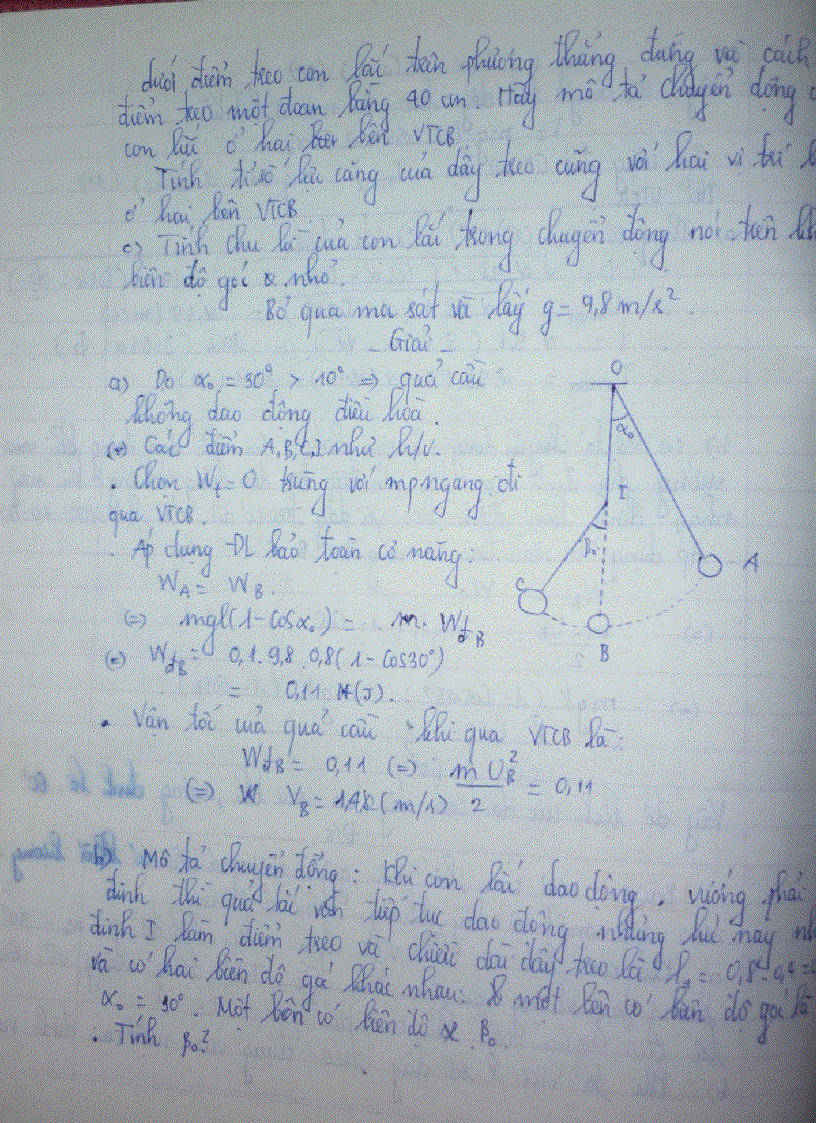 dưới điểm treo con lắc trên phương thẳng đứng và cách
điểm treo một đoạn bằng 40 cm. Hãy mô tả chuyển động c
con lắc ở hai bên VTCB
Tính tỉ số lực căng của dây treo cũng với hai vị trí b
ở hai bên VTCB.
c) Tính chu kì của con lắc trong chuyển động nói trên kh
biên độ góc α nhỏ.
Bỏ qua ma sát và lấy g = 9,8 m/s².
Giải
a) Do α₀ = 30° > 10° => quả cầu
không dao động điều hoà.
(+) Các điểm A,B,C,I như h/v.
. Chọn Wt = 0 trùng với mp ngang đi
qua VTCB.
. Áp dụng ĐL bảo toàn cơ năng:
W_A = W_B.
(=) mgl(1-cosα₀) = W_đB
(=) W_đB = 0,1.9,8.0,8(1-cos30°)
= 0,11 (J).
. Vận tốc của quả cầu khi qua VTCB là:
W_đB = 0,11 (=) m U_B²/2 = 0,11
(=) V_B = 1,48 (m/s)
b) Mô tả chuyển động: Khi con lắc dao động. vướng phải
đinh thì quả lắc vẫn tiếp tục dao động nhưng lúc này nh
đinh I làm điểm treo và chiều dài dây treo là l₁ = 0,8-0,4=
và có hai biên độ góc khác nhau: một bên có biên độ góc là
α₀ = 30°. Một bên có biên độ β₀.
. Tính β₀?
O
α₀
I
β₀
C
A
B